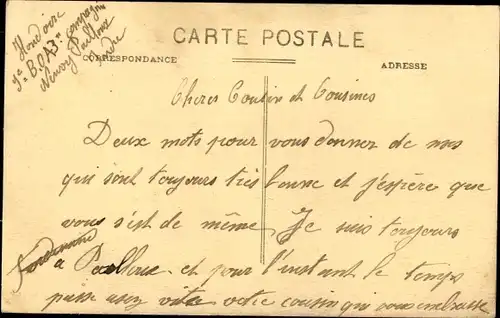 9e B.O.A 3e Compagnie
Indre
CARTE POSTALE
CORRESPONDANCE
ADRESSE
Cheres Cousin et Cousines
Deux mots pour vous donner de mes
qui sont toujours très bonne et j'espère que
vous s'est de même Je suis toujours
a et pour l'instant le temps
passe assez vite votre cousin qui vous embrasse